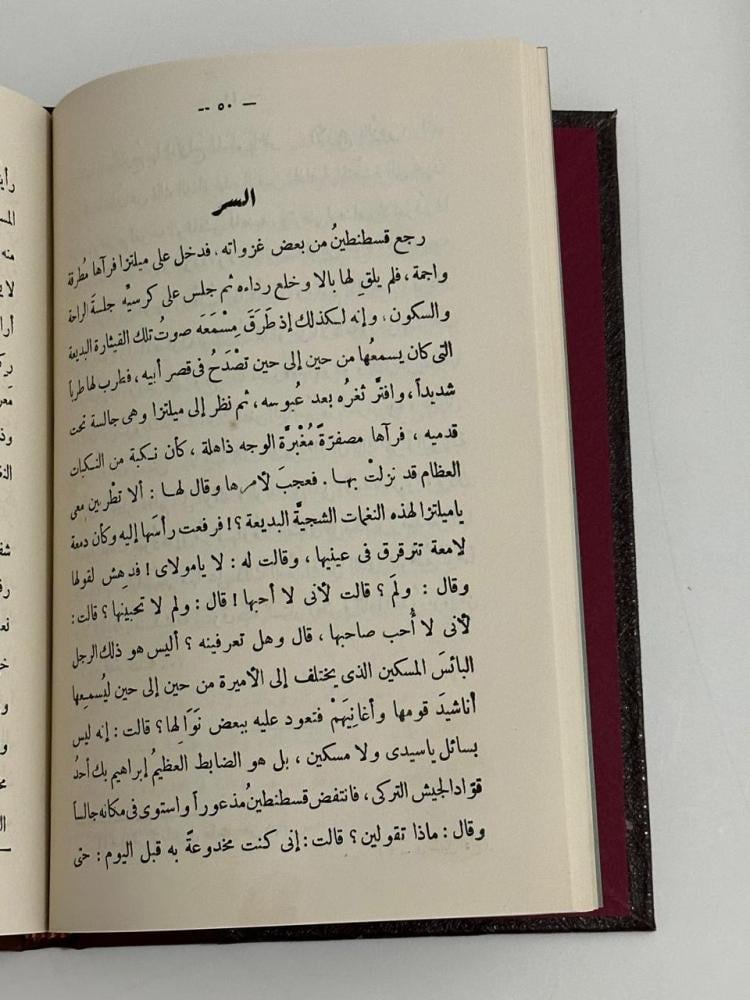 — ٥٠ —
السر
رجع قسطنطينُ من بعض غزواته، فدخل على ميلتزا فرآها مُطرقة
واجمة، فلم يلقِ لها بالا وخلع رداءه ثم جلس على كرسيِّه جلسةَ الراحة
والسكون، وإنه لكذلك إذ طَرَقَ مِسْمَعَه صوتُ تلك القيثارة البديعة
التى كان يسمعُها من حين إلى حين تصْدَحُ فى قصر أبيه، فطرب لها طرباً
شديداً، وافترَّ ثغرُه بعد عُبوسه، ثم نظر إلى ميلتزا وهى جالسة تحت
قدميه، فرآها مصفرّةً مُغْبرَّة الوجه ذاهلة، كأن نكبة من النكبات
العظام قد نزلتْ بها. فعجبَ لأمرها وقال لها: ألا تطْربين معى
ياميلتزا لهذه النغمات الشجيَّة البديعة؟! فرفعت رأسَها إليه وكأن دمعة
لامعة تترقرق فى عينيها، وقالت له: لا يامولاى! فدهِش لقولها
وقال: ولَمَ؟ قالت لأنى لا أحبها! قال: ولم لا تحبينها؟ قالت:
لأنى لا أُحب صاحبها، قال وهل تعرفينه؟ أليس هو ذلك الرجل
البائسَ المسكين الذى يختلف إلى الأميرة من حين إلى حين ليُسمعِها
أناشيدَ قومها وأغانِيَهمْ فتعود عليه ببعض نَوَالها؟ قالت: إنه ليس
بسائل ياسيدى ولا مسكين، بل هو الضابط العظيمُ إبراهيم بك أحدُ
قوّاد الجيش التركى، فانتفض قسطنطينُ مذعوراً واستوى فى مكانه جالساً
وقال: ماذا تقولين؟ قالت: إنى كنت مخدوعةً به قبل اليوم: حتى
رأيت
منه